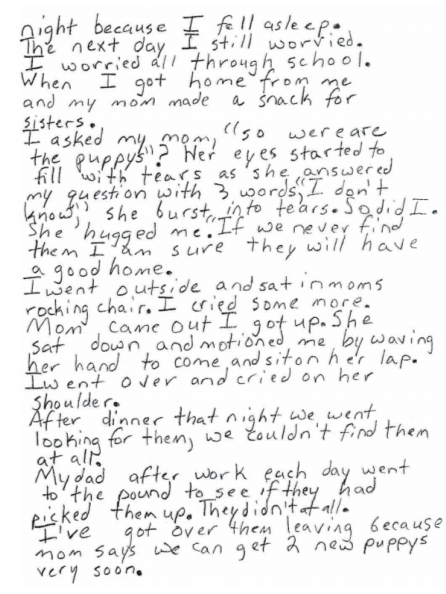 night because I fell asleep.
The next day I still worried.
I worried all through school.
When I got home from me
and my mom made a snack for
sisters.
I asked my mom, "so wereare
the puppys"? Her eyes started to
fill with tears as she answered
my question with 3 words, "I don't
know" she burst into tears. So did I.
She hugged me. If we never find
them I am sure they will have
a good home.
I went outside and sat in moms
rocking chair. I cried some more.
Mom came out I got up. She
sat down and motioned me by waving
her hand to come and sit on her lap.
I went over and cried on her
shoulder.
After dinner that night we went
looking for them, we couldn't find them
at all.
My dad after work each day went
to the pound to see if they had
picked them up. They didn't at all.
I've got over them leaving because
mom says we can get 2 new puppys
very soon.